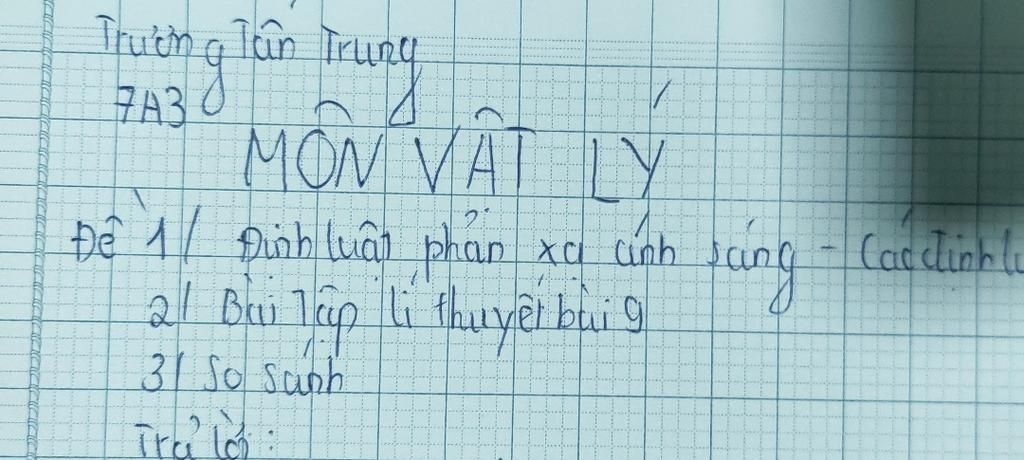 Trương Tấn Trung
7A3
MÔN VẬT LÝ
Đề 1/ Định luật phản xạ ánh sáng - Các định l
2/ Bài Tập lí thuyết bài 9
3/ So sánh
Trả lời: